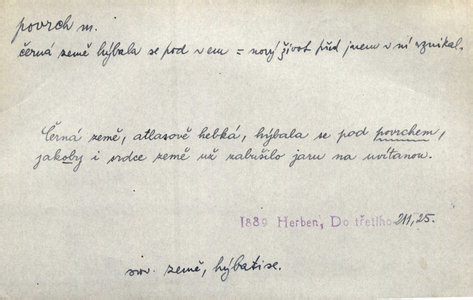 povrch m.
černá země hýbala se pod v em = nový život před jarem v ní vznikal.
Černá země, atlasově hebká, hýbala se pod povrchem,
jakoby i srdce země už zabušilo jaru na uvítanou.
1889 Herben, Do třetího 211, 25.
srv. země, hýbati se.